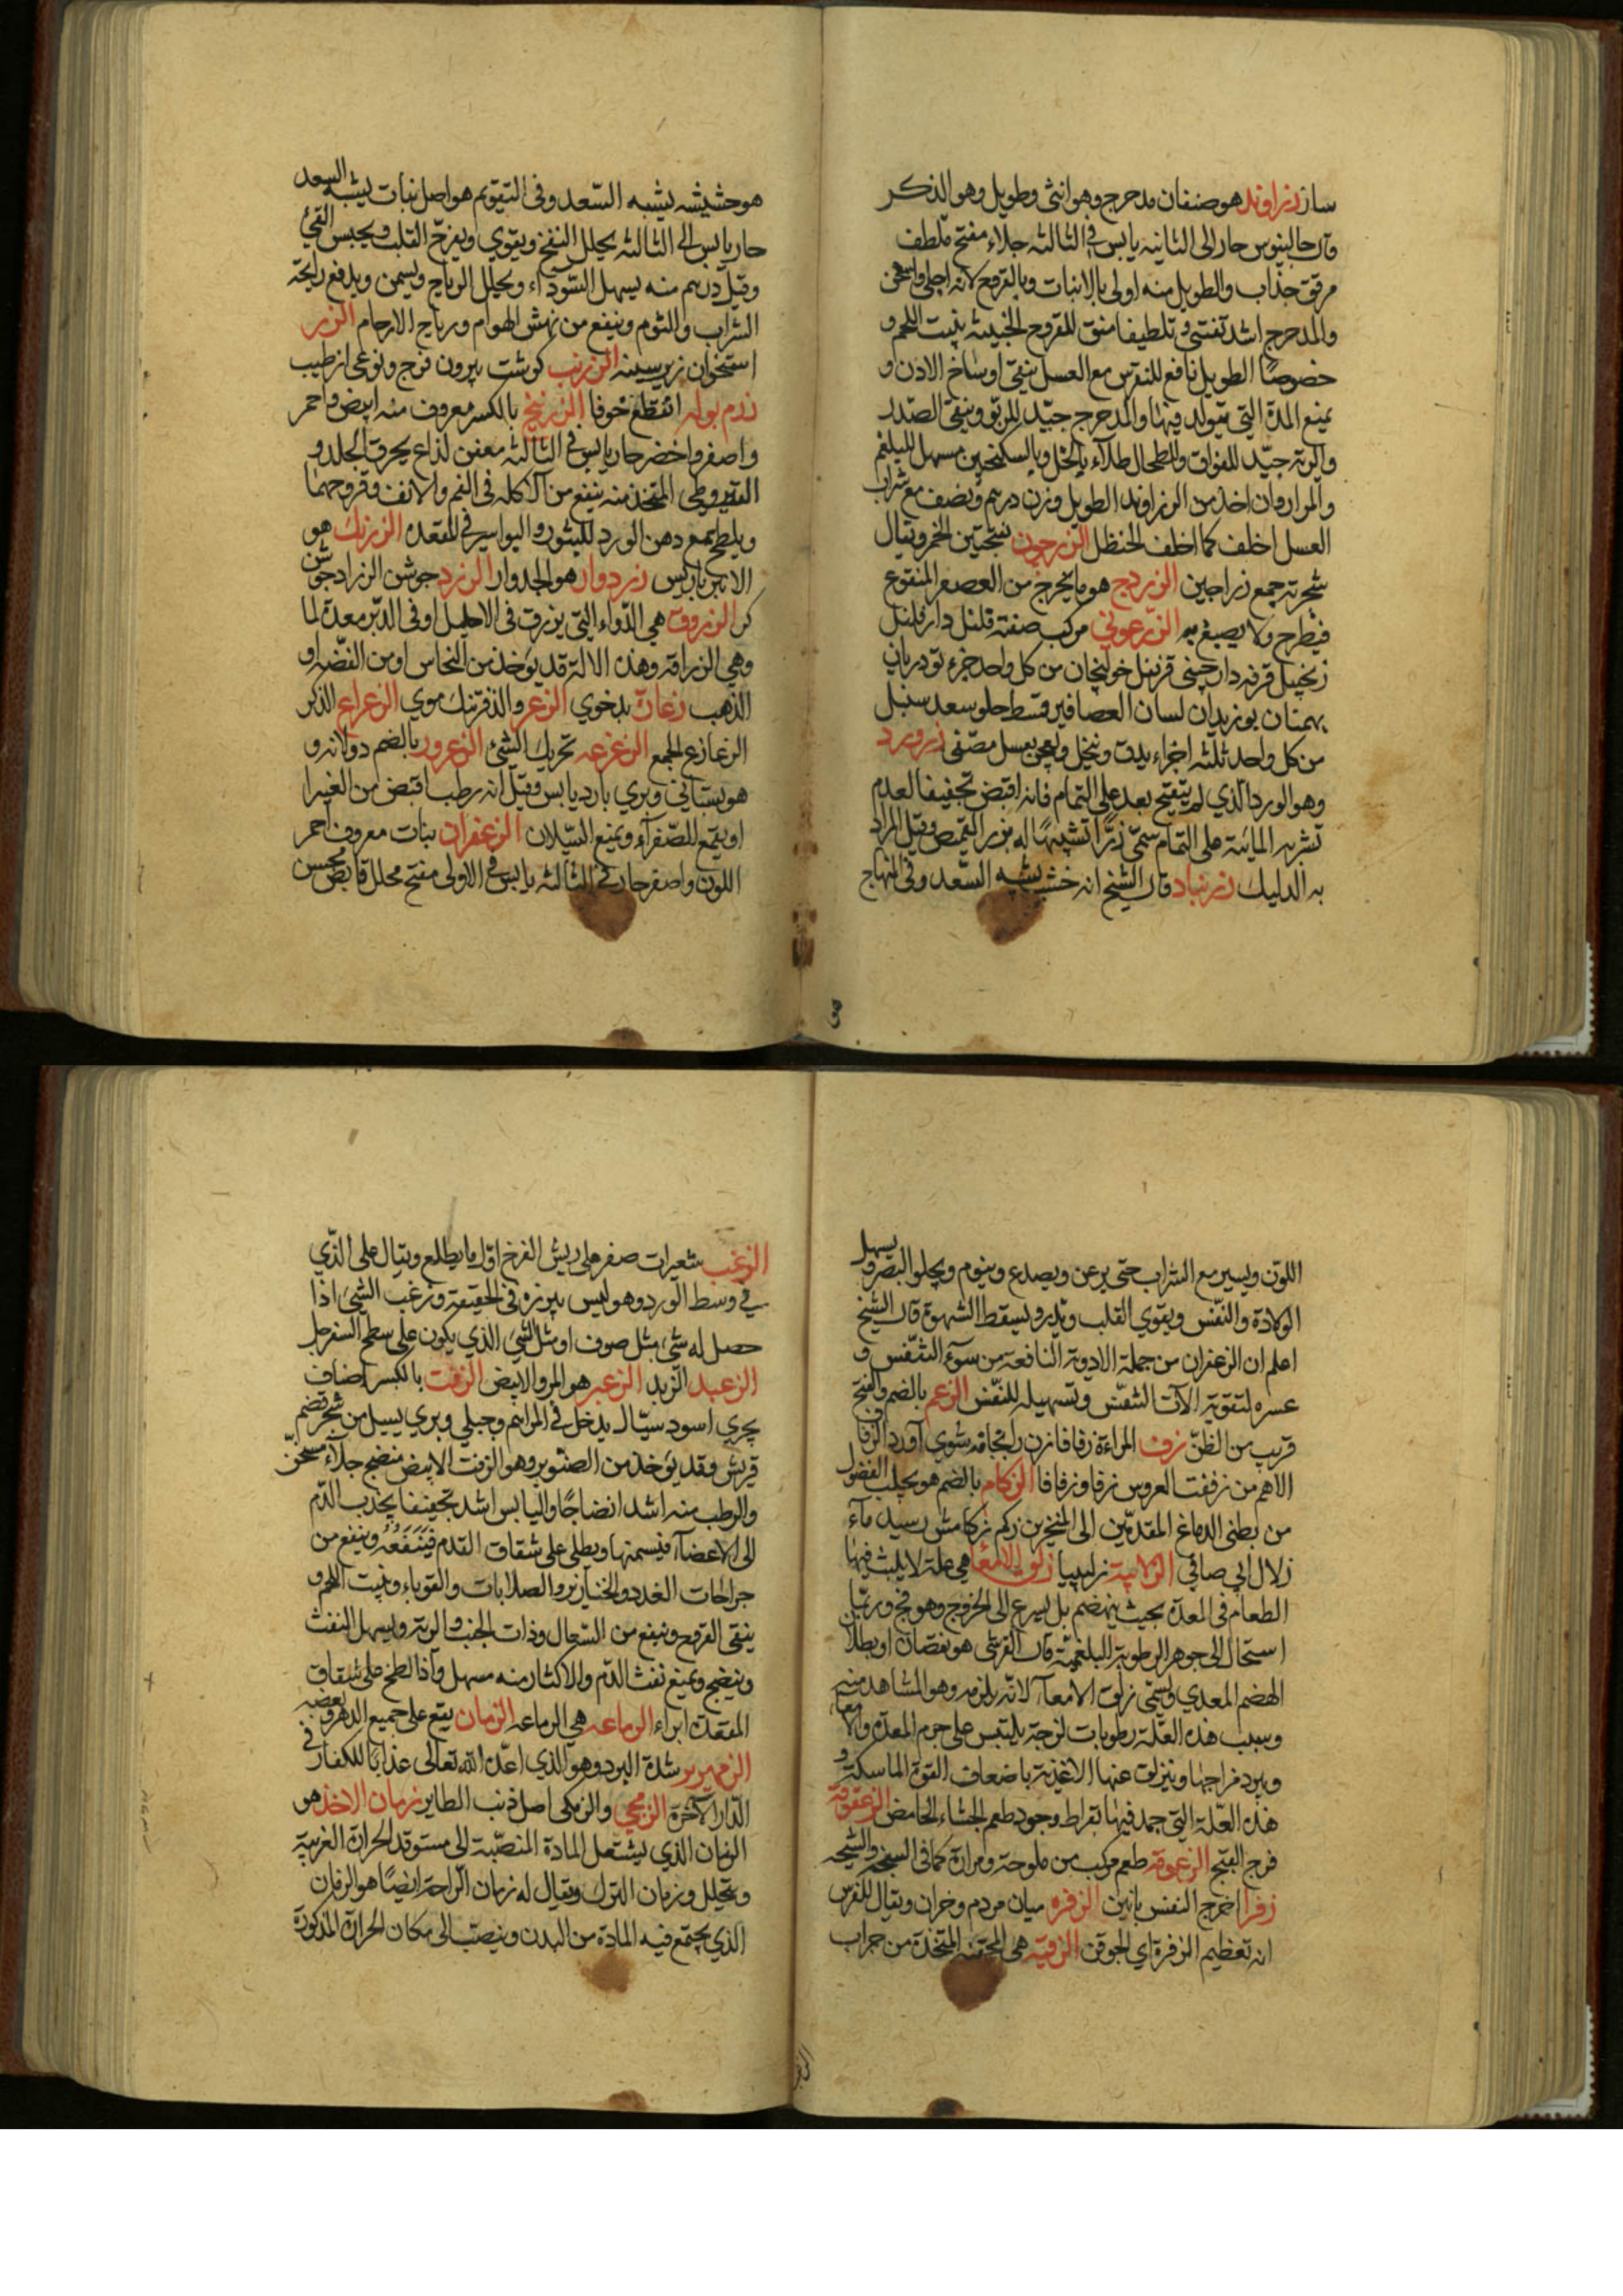 ساز زراوند هو صنفان مدحرج وهو انثى وطويل وهو الذكر
وقال جالينوس حار الى الثانيه يابس في الثالثه جلاء مفتح ملطف
مرقق جذاب والطويل منه اولى بالانبات وبالقروح لانه اجلى واسخن
والمدحرج اشد تفتيح وتلطيفا منق للقروح الخبيثه ينبت اللحم و
خصوصًا الطويل نافع للنقرس مع العسل ينقى اوساخ الاذن و
يمنع المدة التي يتولد فيها والمدحرج جيّد للربو وينقى الصّدر
والريه جيّد للفواق والطحال طلاء بالخل وبالسكنجبين مسهل للبلغم
والمرار وان اخذ من الزراوند الطويل وزن درهم ونصف مع شراب
العسل اخلف كما اخلف الحنظل الزرجون الخمر ويقال
شجرته جمع زراجين الزردج هو ما يخرج من العصفر المنقوع
فيطرح ولا يصبغ به الزرعونى مركب صفته فلفل دار فلفل
زنجبيل قرفه دارچينى قرنفل خولنجان من كل واحد جزء تودريان
بهمنان بوزيدان لسان العصافير قسط حلو سعد سنبل
من كل واحد ثلثه اجزاء يدق وينخل ويعجن بعسل مصّفى زرورد
وهو الورد الّذي لم يتفتح بعد على التمام فانه اقبض تجفيفا لعدم
تشربه المائيّة على التمام سمّى زرًّا تشبيهًا له بزر القميص وقيل المراد
به الدليك زرنباد قال الشيخ انه خشب يشبه السّعد وفى المنهاج
هو حشيشه يشبه السّعد وفى التقويم هو اصل نبات يشبه السعد
حار يابس الى الثالثه يحلل النفخ ويقوي ويفرح القلب ويحبس القئ
وقيل درهم منه يسهل السّودآء ويحلل الرياح ويسمن ويدفع رايحة
الشراب والثوم وينفع من نهش الهوام ورياح الارحام الزر
استخوان زير سينه الزرنب كوشت بيرون فرج ونوعى از طيب
زرم بوله انقطع خوفا الزرنيخ بالكسر معروف منه ابيض واحمر
واصفر واخضر حار يابس في الثالثه معفن لذاع يحرق الجلد و
القيروطى المتخذ منه ينفع من الآكله فى الفم والانف وقروحهما
ويلطخ مع دهن الورد للبثور والبواسير في المقعده الزرنك هو
الانبرباريس زردوار هو الجدوار الزرد جوشن الزراد جوشن
كر الزروق هي الدّواء التي يزرق فى الاحليل او فى الدبّر معدة لما
وهي الزراقه وهذه الاله قد يوخذ من النخاس او من الفضه او
الذهب زعارّة بدخوي الزعر والذفر تنك موي الزعراع الذكر
الزعازع الجمع الزعزعه تحريك الشئ الزعرور بالضم دولانه و
هو بستانى وبري بارد يابس وقيل انه رطب اقبض من الغبيرا
او يقمع للصّفرآء ويمنع السّيلان الزعفران نبات معروف احمر
اللون واصفر حار في الثالثه يابس في الاولى مفتح محلل قابض يحسن
اللوّن ويسير مع الشراب حتى يرعن ويصدع وينوم ويجلو البصر ويسهل
الولادة والنّفس ويقوي القلب ويدر ويسقط الشهوة قال الشيخ
اعلم ان الزعفران من جملة الادوية النافعة من سوء التنفّس و
عسره لتقوية الآت التنفّس وتسهيله للنّفس الزعم بالضم والفتح
قريب من الظنّ زف المراءة زفافا زن را بخانه شوي آورد الزفاف
الاهم من زففت العروس زفا وزفافا الزكام بالضم هو تجلب الفضول
من بطنى الدماغ المقدمّين الى المنخرين زكم زكامش رسيد ماء
زلال ابي صافي الزلابية زليبيا زلق الامعا هي علة لا يلبث فيها
الطعام فى المعدة بحيث ينهضم بل يسرع الى الخروج وهو فج وربمّا
استحال الى جوهر الرطوبة البلغميّة قال القرشى هو نقصان او بطلان
الهضم المعدي ويسّمى زلق الامعآء لانّه يلزمه وهو المشاهد منه
وسبب هذه العلّة رطوبات لزجة يلتبس على جرم المعدة والامعاء
ويبرد مزاجها وينزلق عنها الاغذية باضعاف القوة الماسكة و
هذه العلّة التي حمد فيها بقراط وجود طعم الجشاء الحامض الزعقوقة
فرج القبج الزعوقة طعم مركب من ملوحة ومرارة كما فى السبخه والشيحه
زفرا اخرج النفس بانين الزفره ميان مردم وخران ويقال للفرس
انه تعظيم الزفرة اي الجوف الزقيّه هي المحقنه المتخذة من جراب
الزغب شعيرات صفر على ريش الفرخ اوّل ما يطلع ويقال على الّذي
في وسط الورد وهو ليس ببزره فى الحقيقة وزغب الشئ اذا
حصل له شئ مثل صوف او مثل الشئ الذي يكون على سطح السفرجل
الزعبد الزبد الزعبر هو المرو الابيض الزفت بالكسر اصناف
بحري اسود سيّال يدخل في المراهم وجبلي وبري يسيل من شجر تضم
قريش وقد يوخذ من الصنوبر وهو الزفت الابيض منضج جلآء مسخّن
والرطب منه اشد انضاجًا واليابس اشد تجفيفا يجذب الدّم
الى الاعضآء فيسمنها ويطلى على شقاق القدم فَيَنفَعُهُ وينفع من
جراحات الغدد والخنازير والصلابات والقوباء وينبت اللحم و
ينقى القروح وينفع من السّعال وذات الجنب والرية ويسهل النفث
وينضج ويمنع نفث الدّم والاكثار منه مسهل وآذا لطخ على شقاق
المقعدة ابراء الزماعه هي الرماعه الزمان يقع على جميع الدهر وبعضه
الزمهرير شدة البرد وهو الذي اعدّه الله تعالى عذابًا للكفار فى
الدّار الآخرة الزمجي والزمكى اصل ذنب الطاير زمان الاخذ هو
الزمان الذي يشتعل المادة المنصّبة الى مستوقد الحرارة الغريبة
ويتحلل وزمان الترك ويقال له زمان الرّاحة ايضًا هو الزمان
الذي يجتمع فيه المادة من البدن وينصبّ الى مكان الحرارة المذكورة